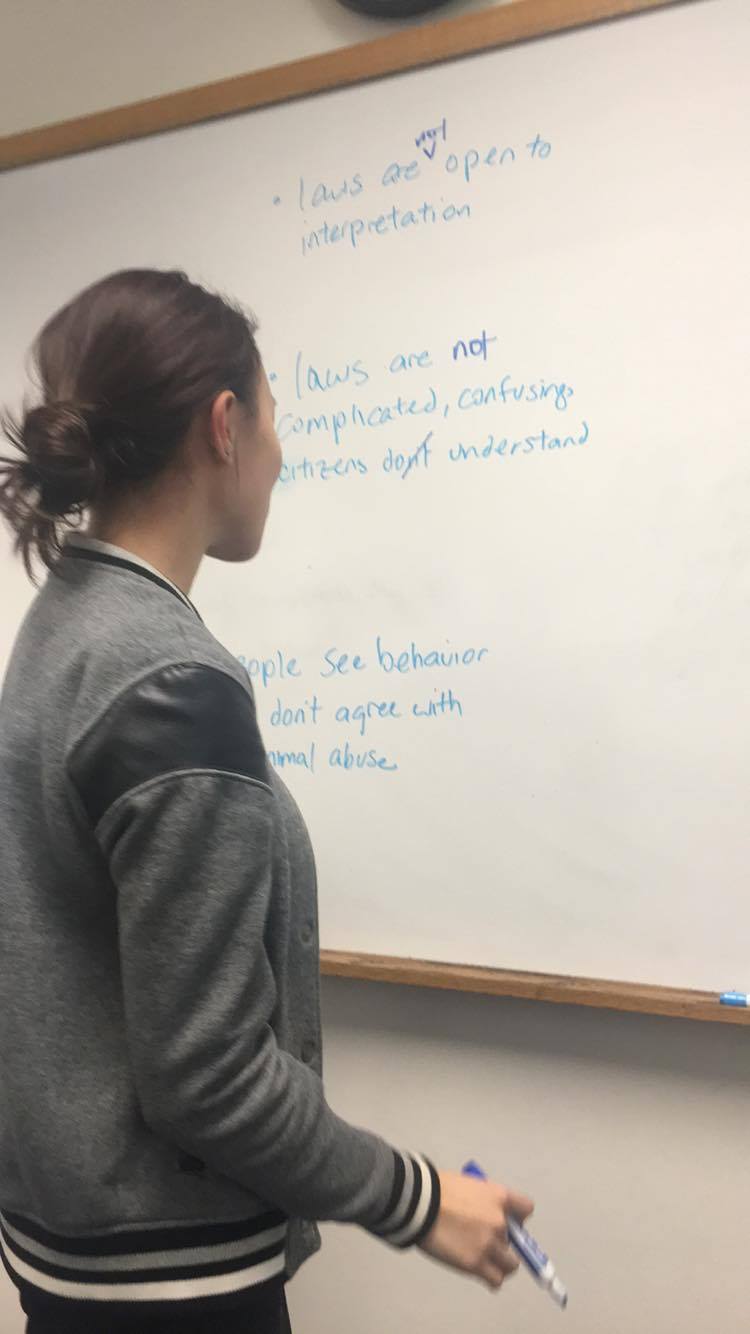 not
• laws are open to
interpretation
• laws are not
complicated, confusing,
citizens don't understand
see behavior
don't agree with
abuse